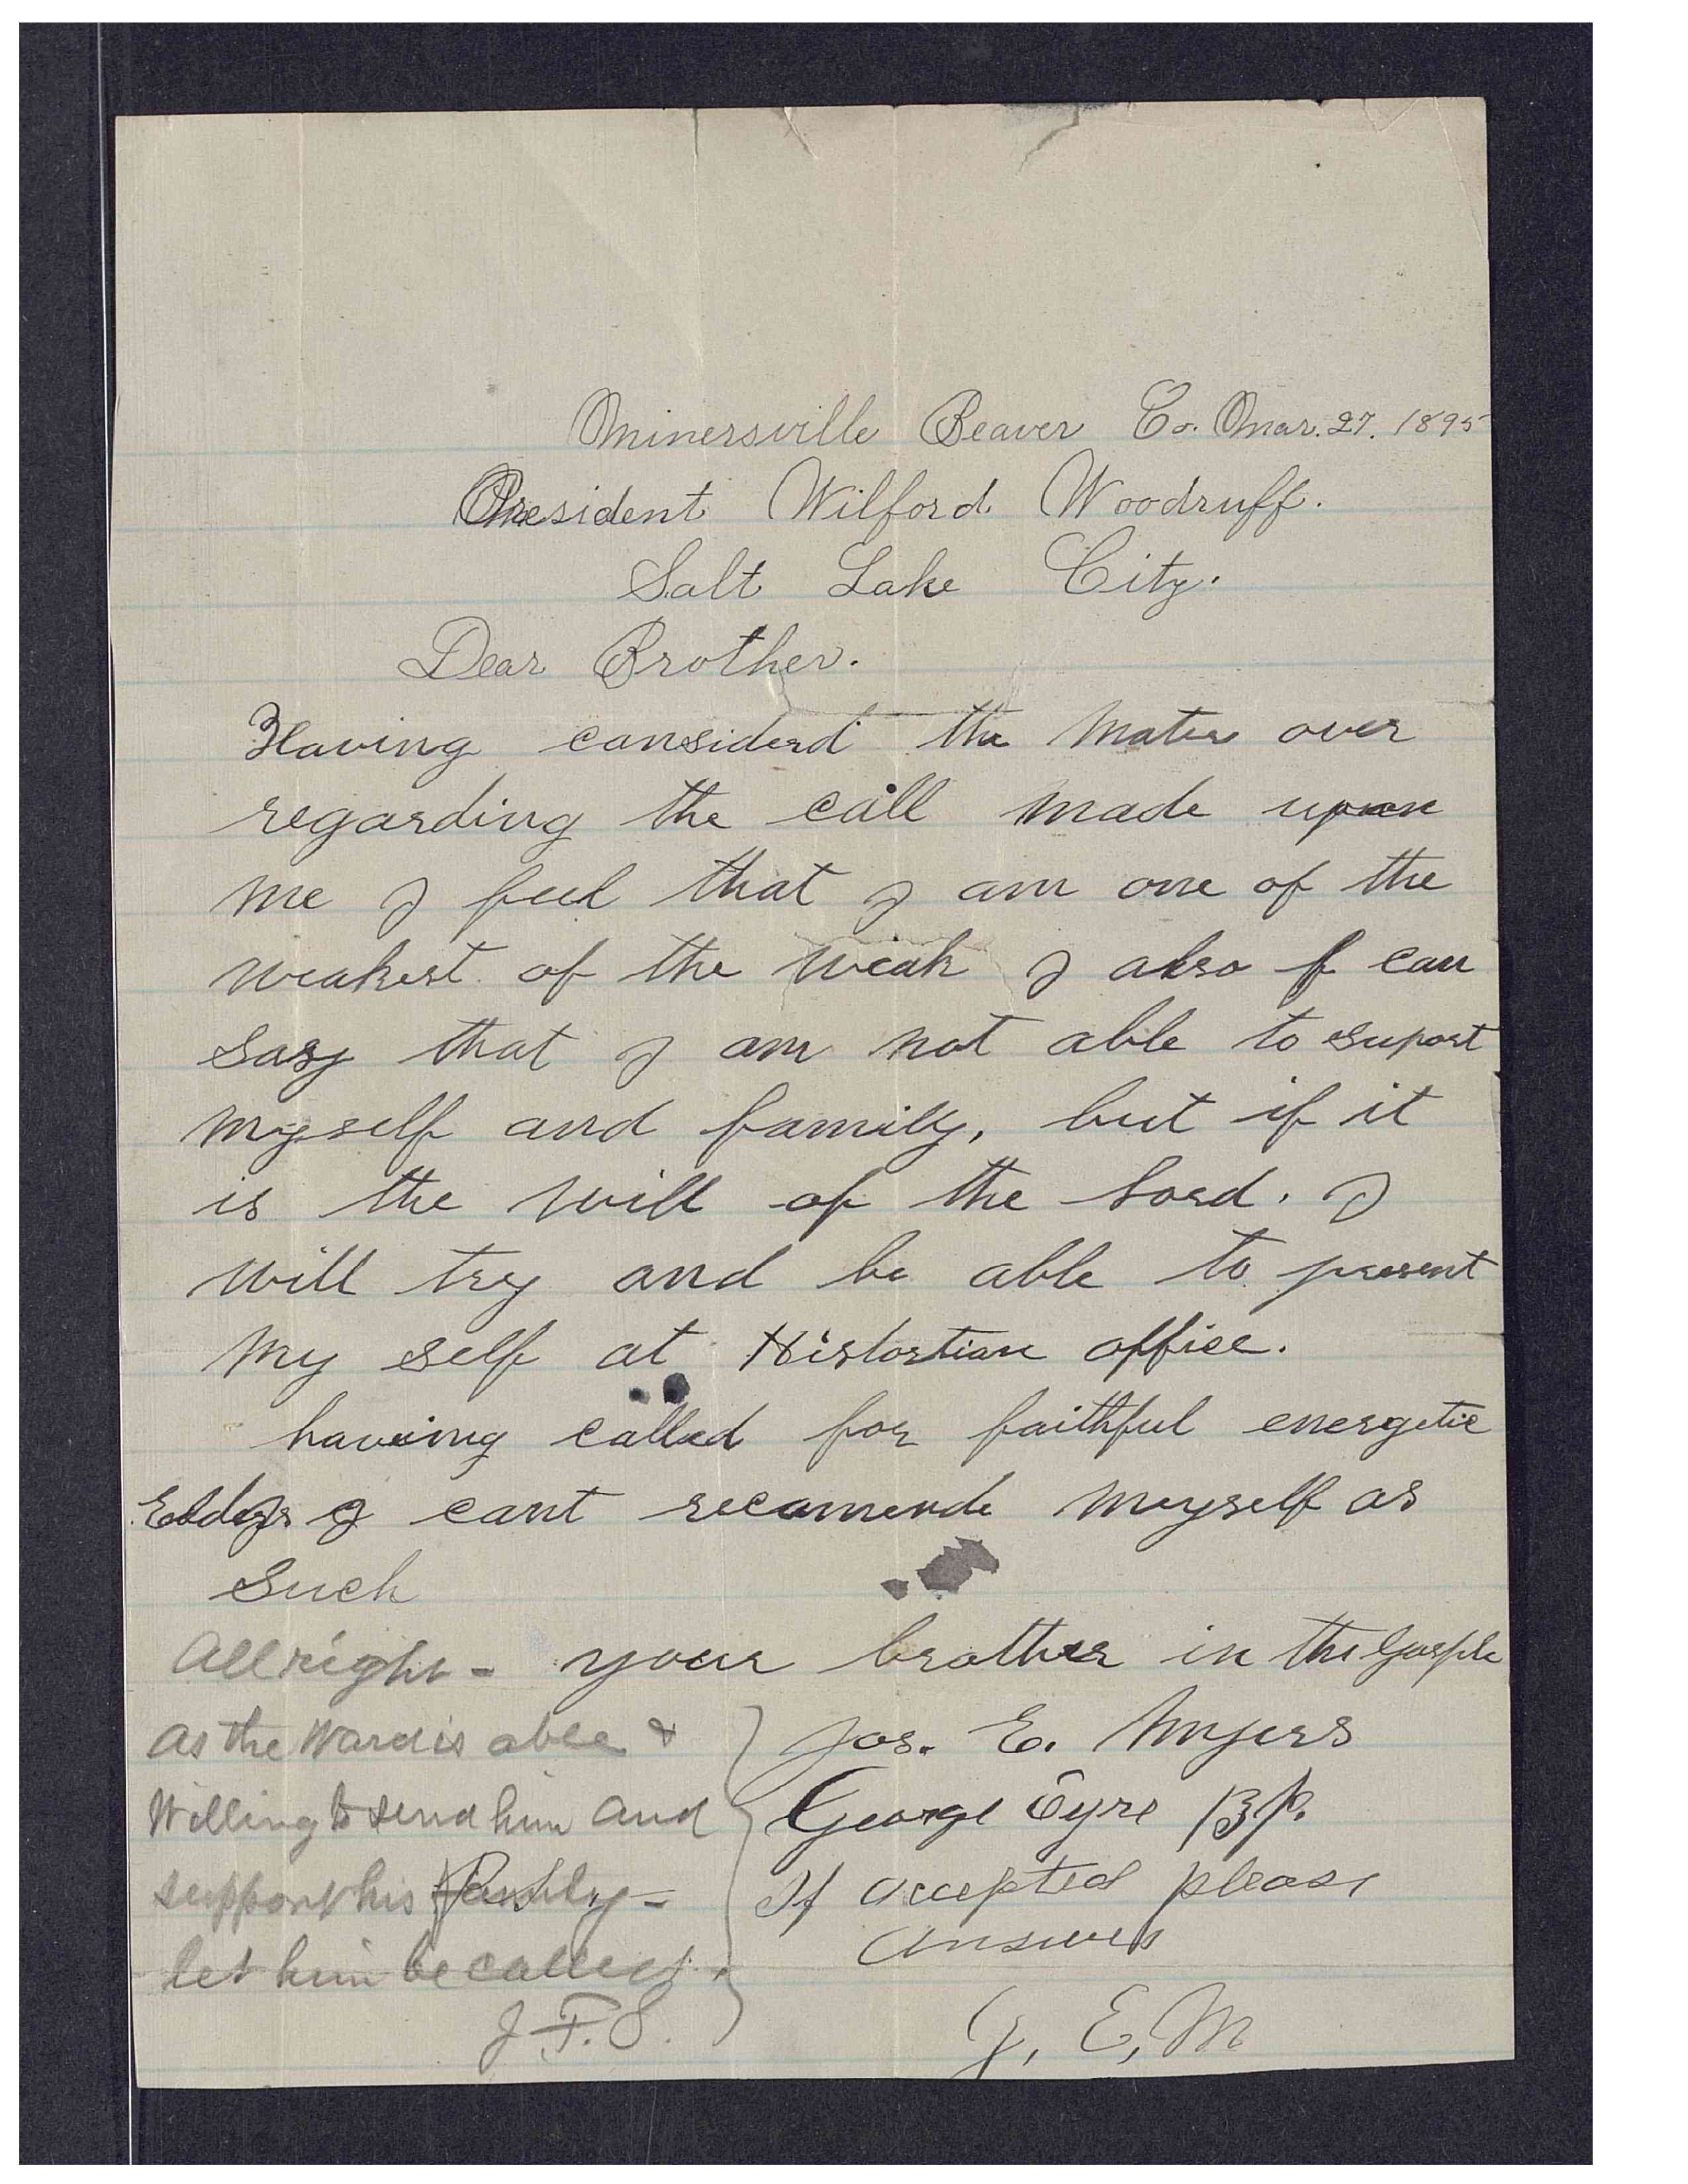 Minersville Beaver Co. Mar. 27. 1895
President Wilford Woodruff.
Salt Lake City.
Dear Brother.
Having considerd the mater over
regarding the call made upon
me I feel that I am one of the
weakest of the weak I also I can
say that I am not able to suport
myself and family, but if it
is the will of the Lord. I
will try and be able to present
my self at Histortian office.
haveing called for faithful energetic
Elders I cant recomende meyself as
Such
your brother in the Gosple
Jos. E. Myers
George Eyre BP.
If accepted please
answer
J, E, M
All right -
as the Ward is able &
Willing to send him and
support his family -
let him be called.
J. F. S.